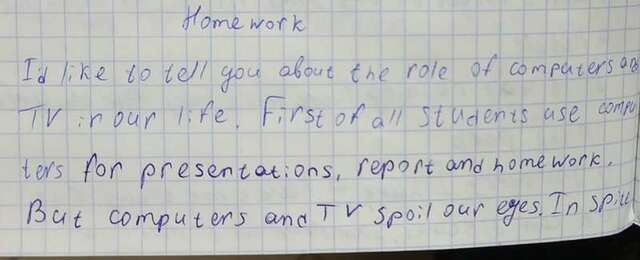 Homework
I'd like to tell you about the role of computers
TV in our life. First of all students use compu
ters for presentations, report and homework.
But computers and TV spoil our eyes. In